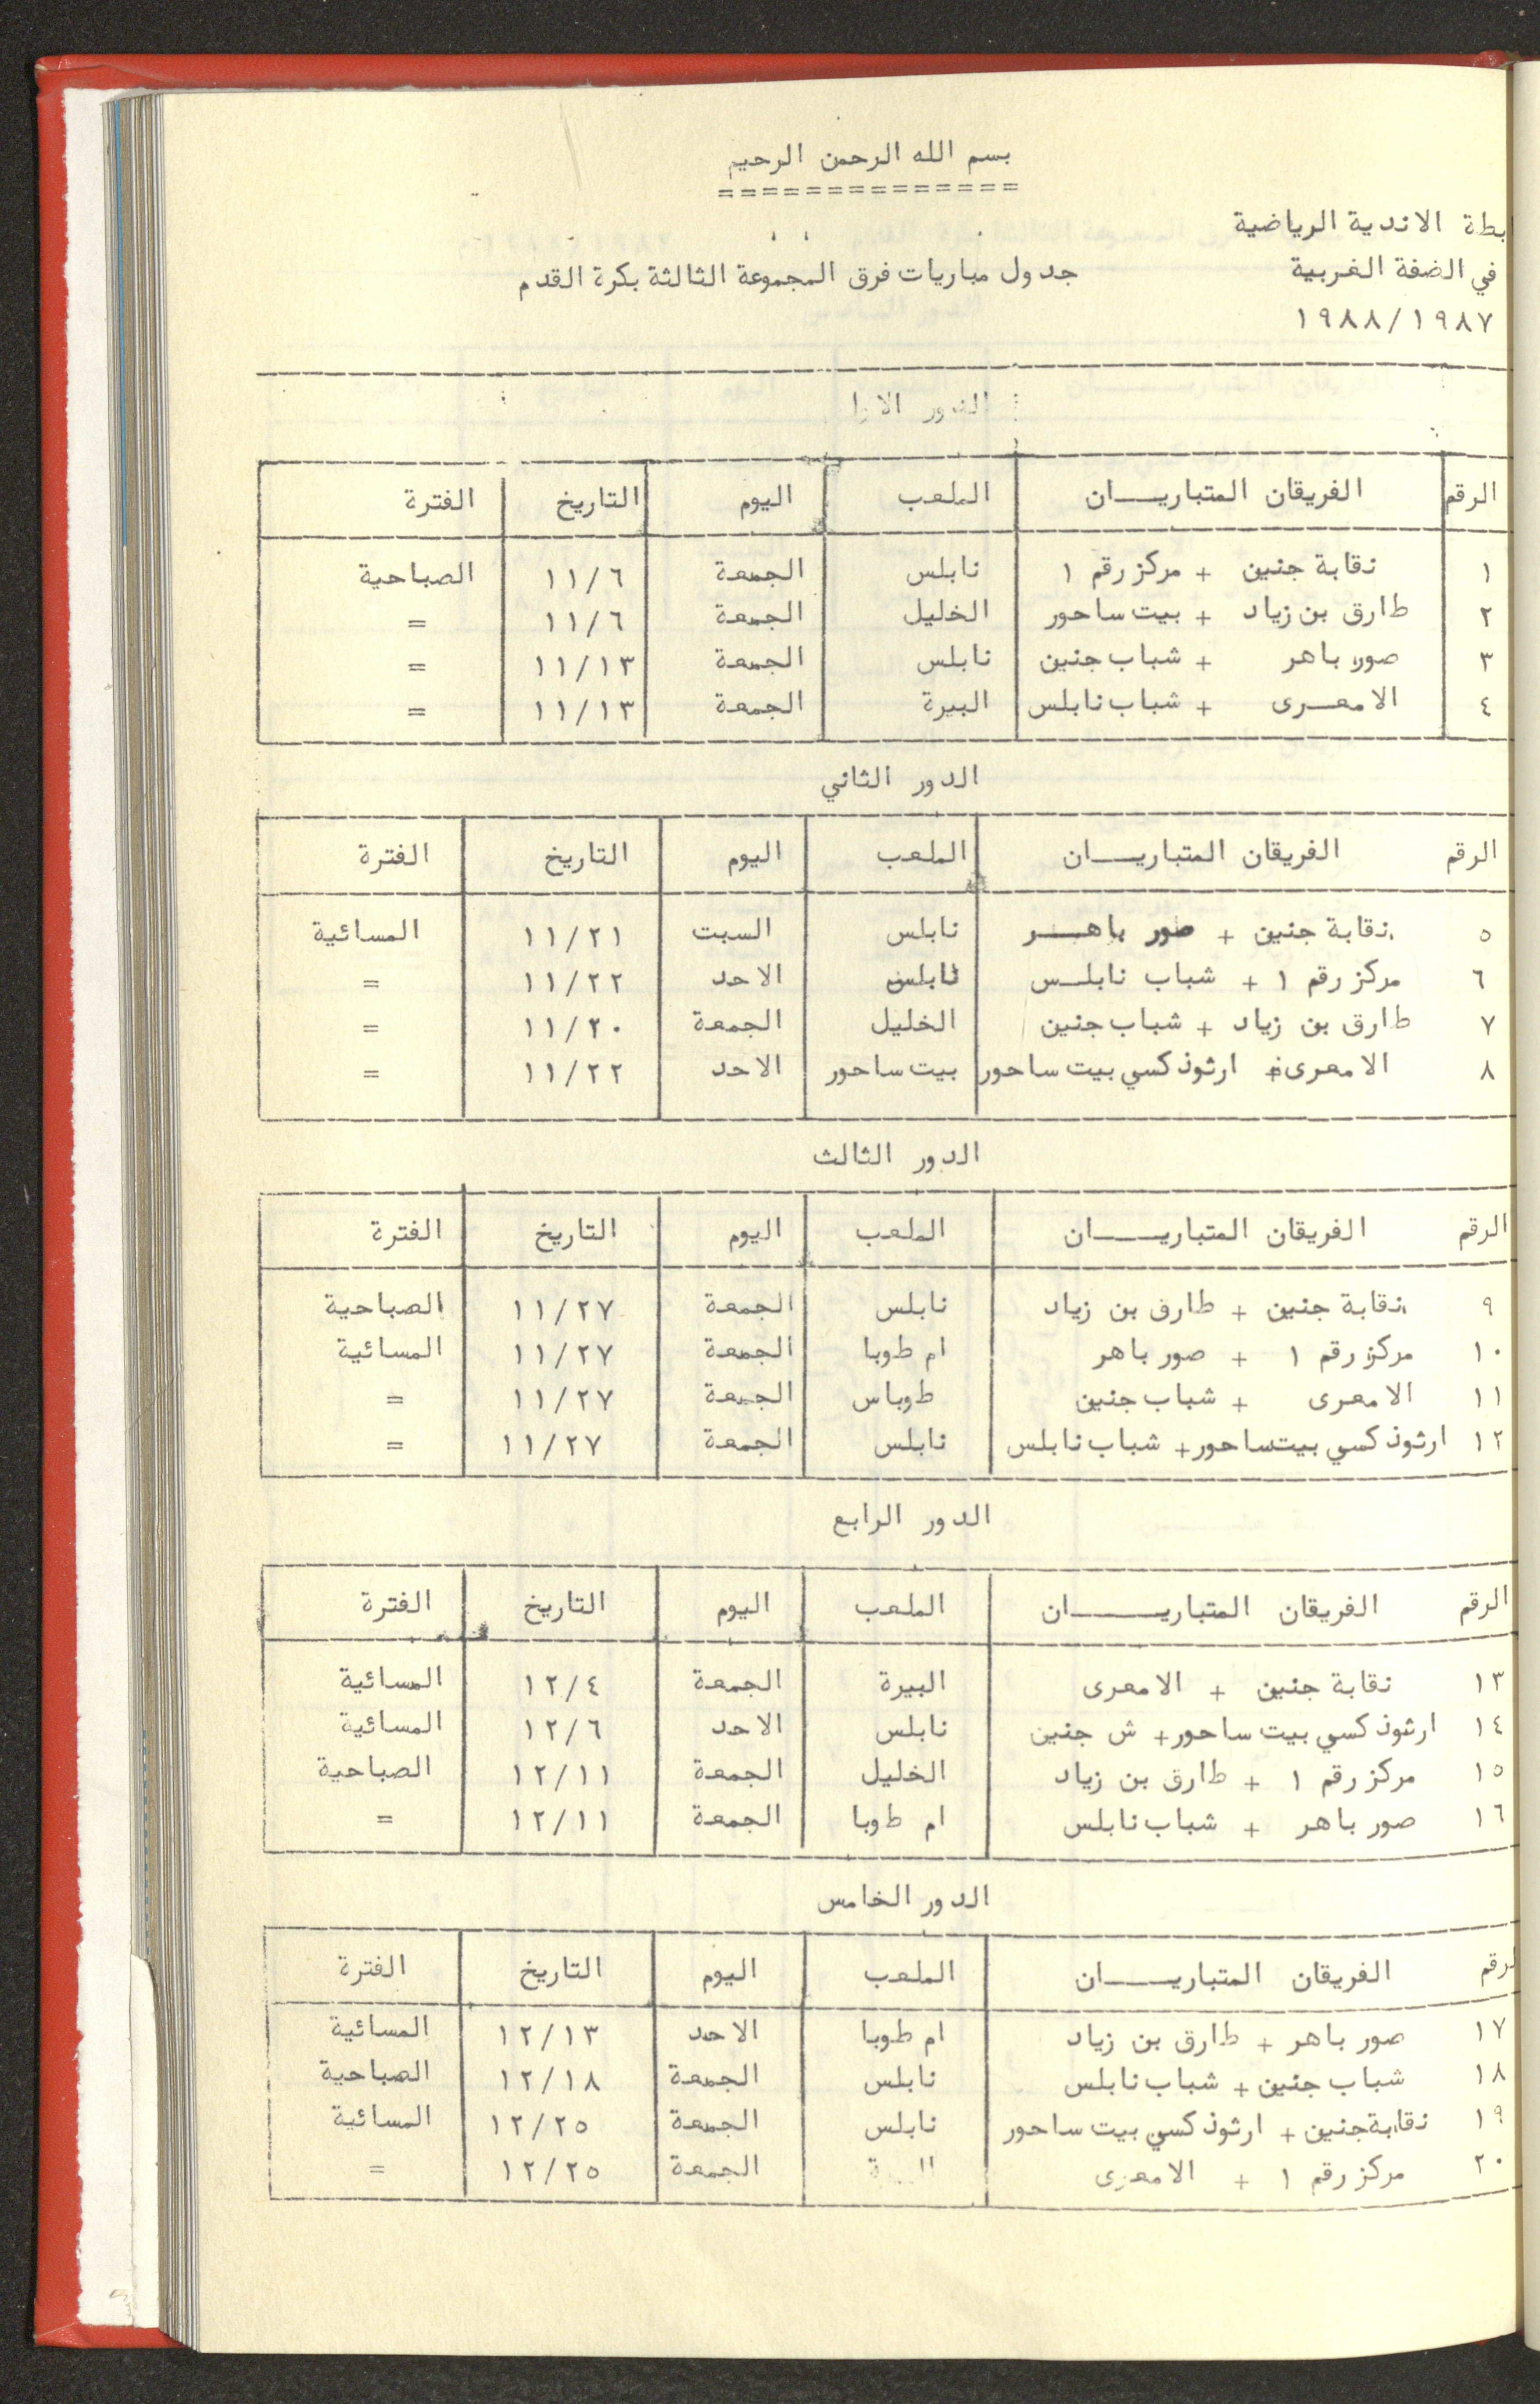 بسم الله الرحمن الرحيم
==============
بطة الاندية الرياضية
في الضفة الغربية
جدول مباريات فرق المجموعة الثالثة بكرة القدم
١٩٨٨/١٩٨٧
الدور الاول
الرقم الفريقان المتباريـــان الملعب اليوم التاريخ الفترة
١ نقابة جنين + مركز رقم ١ نابلس الجمعة ١١/٦ الصباحية
٢ طارق بن زياد + بيت ساحور الخليل الجمعة ١١/٦ =
٣ صور باهر + شباب جنين نابلس الجمعة ١١/١٣ =
٤ الامعـرى + شباب نابلس البيرة الجمعة ١١/١٣ =
الدور الثاني
الرقم الفريقان المتباريـــان الملعب اليوم التاريخ الفترة
٥ نقابة جنين + صور باهــر نابلس السبت ١١/٢١ المسائية
٦ مركز رقم ١ + شباب نابلـس نابلس الاحد ١١/٢٢ =
٧ طارق بن زياد + شباب جنين الخليل الجمعة ١١/٢٠ =
٨ الامعرى + ارثوذكسي بيت ساحور بيت ساحور الاحد ١١/٢٢ =
الدور الثالث
الرقم الفريقان المتباريـــان الملعب اليوم التاريخ الفترة
٩ نقابة جنين + طارق بن زياد نابلس الجمعة ١١/٢٧ الصباحية
١٠ مركز رقم ١ + صور باهر ام طوبا الجمعة ١١/٢٧ المسائية
١١ الامعرى + شباب جنين طوباس الجمعة ١١/٢٧ =
١٢ ارثوذكسي بيت ساحور + شباب نابلس نابلس الجمعة ١١/٢٧ =
الدور الرابع
الرقم الفريقان المتباريـــان الملعب اليوم التاريخ الفترة
١٣ نقابة جنين + الامعرى البيرة الجمعة ١٢/٤ المسائية
١٤ ارثوذكسي بيت ساحور + ش جنين نابلس الاحد ١٢/٦ المسائية
١٥ مركز رقم ١ + طارق بن زياد الخليل الجمعة ١٢/١١ الصباحية
١٦ صور باهر + شباب نابلس ام طوبا الجمعة ١٢/١١ =
الدور الخامس
لرقم الفريقان المتباريـــان الملعب اليوم التاريخ الفترة
١٧ صور باهر + طارق بن زياد ام طوبا الاحد ١٢/١٣ المسائية
١٨ شباب جنين + شباب نابلس نابلس الجمعة ١٢/١٨ الصباحية
١٩ نقابة جنين + ارثوذكسي بيت ساحور نابلس الجمعة ١٢/٢٥ المسائية
٢٠ مركز رقم ١ + الامعرى الجمعة ١٢/٢٥ =